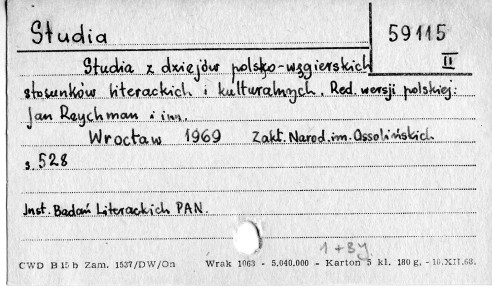 Studia
59115
II
Studia z dziejów polsko-węgierskich
stosunków literackich i kulturalnych. Red. wersji polskiej:
Jan Reychman i inn.
Wrocław 1969 Zakł. Narod. im. Ossolińskich
s. 528
Inst. Badań Literackich PAN.
1+By
CWD B 15 b Zam. 1537/DW/On Wrak 1063 - 5.040.000 - Karton 5 kl. 180 g. - 16.XII.68.